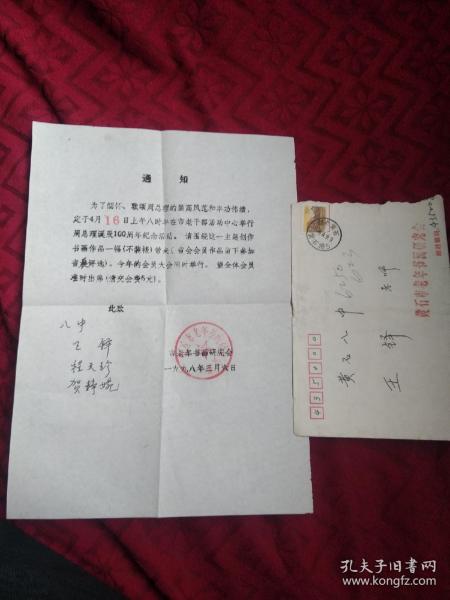 通 知
为了缅怀、歌颂周总理的崇高风范和丰功伟绩,
定于4月16日上午八时半在市老干部活动中心举行
周总理诞辰100周年纪念活动。请围绕这一主题创作
书画作品一幅(不装裱)带来(省会会员作品留下参加
省展评选)。今年的会员大会同时举行。望全体会员
准时出席(请交会费5元)。
此致
八中
王 铎
程天珍
贺静婉
市老年书画研究会
一九九八年三月六日
435000
黄石八中
王 铎 老师
黄石市老年书画研究会
邮政编码:435000
孔夫子旧书网
www.kongfz.com